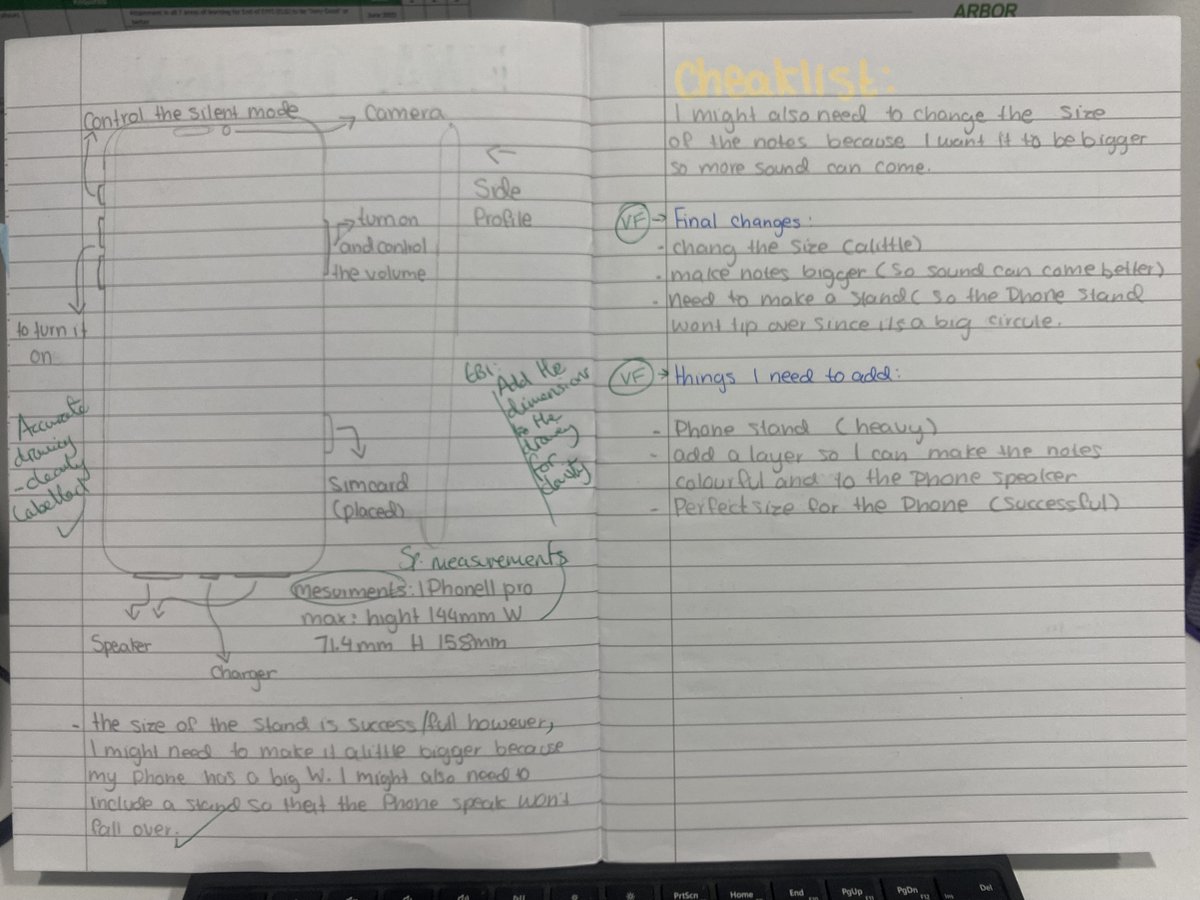 ARBOR
Control the silent mode
Camera
Side
Profile
turn on
and control
the volume
to turn it
on
EBI: Add the
dimensions
to the
drawing
for
clarity
Accurate
drawing
- clearly
labelled
Simcard
(placed)
Sp. measurements
mesurments: IPhone11 pro
max: hight 144mm W
71.4mm H 158mm
Speaker
Charger
- the size of the stand is success/full however,
I might need to make it alittle bigger because
my phone has a big W. I might also need to
include a stand so that the Phone speak won't
fall over.
Cheaklist:
I might also need to change the size
of the notes because I want it to be bigger
so more sound can come.
VF → Final changes:
- chang the size (alittle)
- make notes bigger (so sound can come better)
- need to make a stand ( so the Phone stand
wont tip over since its a big circule.
VF → things I need to add:
- Phone stand (heavy)
- add a layer so I can make the notes
colourful and to the Phone speaker
- Perfect size for the Phone (successful)
PrtScn
Home
End
PgUp
PgDn
Del